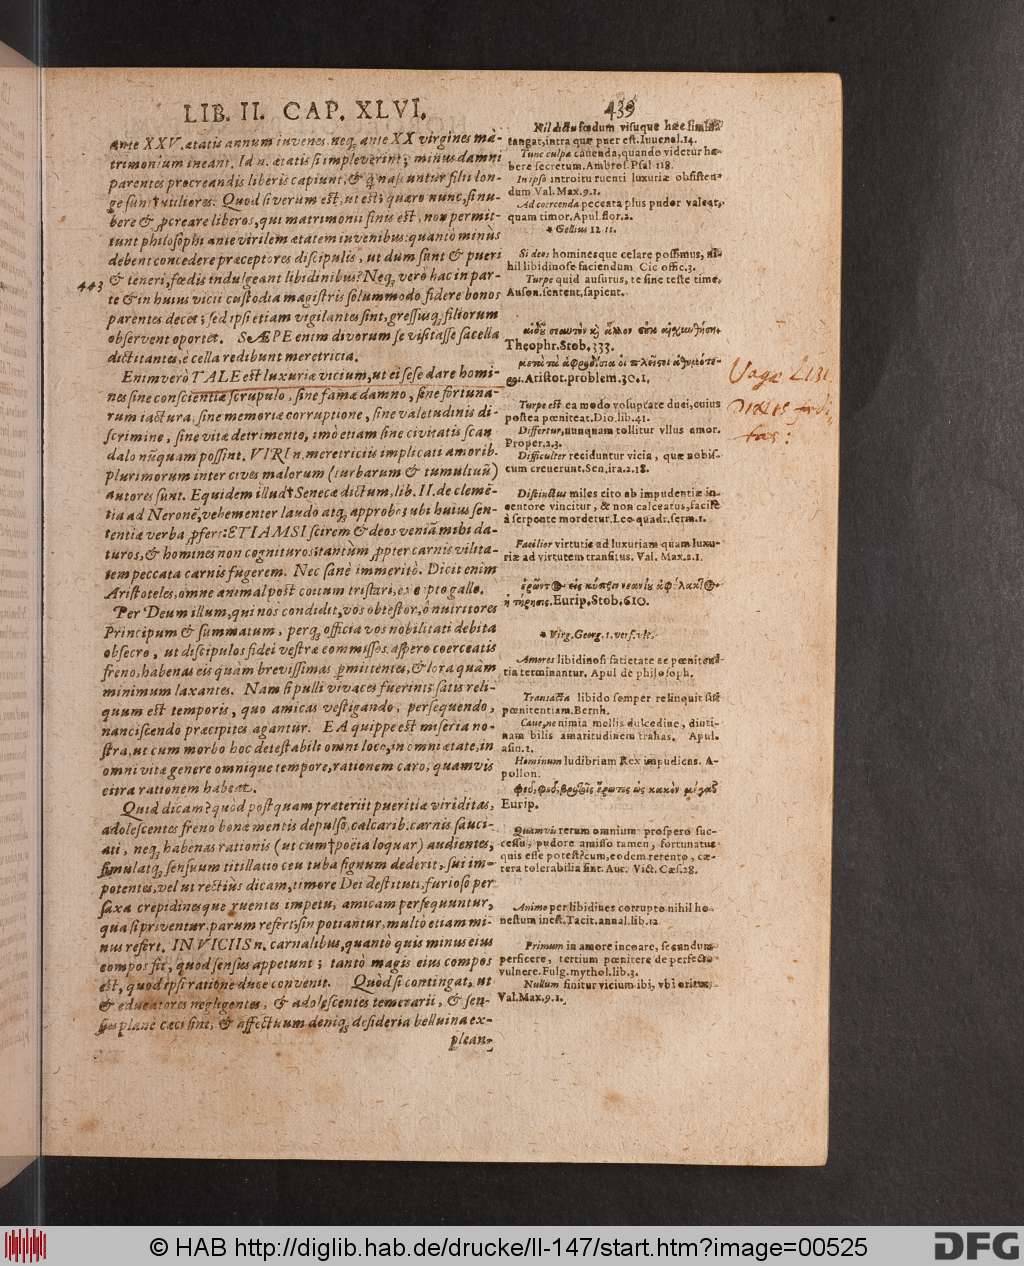 LIB. II. CAP. XLVI.
439
ante XXV. ætatis annum iuvenes. neq; ante XX virgines ma-
trimonium ineant. Id n. ætatis si impleverint; minus damni
parentes procreandis liberis capiunt, & nascuntur filii lon-
ge utiliores. Quod si verum est, ut est; quæro nunc, si nu-
bere & pcreare liberos, qui matrimonii finis est, non permit-
tunt philosophi ante virilem ætatem iuvenibus: quantò minùs
debent concedere præceptores discipulis, ut dum sunt & pueri
& teneri, fœdis indulgeant libidinibus? Neq; verò hac in par-
te & in huius vicii custodia magistris solummodo fidere bonos
parentes decet; sed ipsi etiam vigilantes sint, gressusq; filiorum
observent oportet. SÆPE enim divorum se visitasse sacella
dictitantes, è cella redibunt meretricia.
443
Enimverò TALE est luxuriæ vicium, ut ei sese dare homi-
nes sine conscientiæ scrupulo, sine famæ damno, sine fortuna-
rum iactura, sine memoriæ corruptione, sine valetudinis di-
scrimine, sine vitæ detrimento, imò etiam sine civitatis scan
dalo nūquam possint. VIRI n. meretriciis implicati amorib.
plurimorum inter cives malorum (turbarum & tumultuū)
autores sunt. Equidem illud† Senecæ dictum, lib. II. de clemē-
tia ad Neronē, vehementer laudo atq; approbo; ubi huius sen-
tentiæ verba pfert: ETIAMSI scirem & deos veniā mihi da-
turos, & homines non cognituros: tantùm ppter carnis vilita-
tem peccata carnis fugerem. Nec sanè immeritò. Dicit enim
Aristoteles, omne animal post coitum tristari, excepto gallo.
Per Deum illum, qui nos condidit, vos obtestor, ô nutritores
Principum & summatum, perq; officia vos nobilitati debita
obsecro, ut discipulos fidei vestræ commissos, aspero coerceatis
freno, habenas eis quàm brevissimas pmittentes, & lora quàm
minimum laxantes. Nam si pulli vivaces fuerint; satis reli-
quum est temporis, quo amicas vestigando, persequendo,
nanciscendo præcipites agantur. EA quippe est miseria no-
stra, ut cum morbo hoc detestabili omni loco, in omni ætate, in
omni vitæ genere omnique tempore, rationem caro, quamvis
citra rationem habeat.
Quid dicam? quòd postquam præteriit pueritiæ viriditas,
adolescentes freno bonæ mentis depulso, calcarib. carnis sauci-
ati, neq; habenas rationis (ut cum† poëta loquar) audientes,
simulatq; sensuum titillatio ceu tuba signum dederit, sui im-
potentes, vel ut rectiùs dicam, timore Dei destituti, furioso per
saxa crepidinesque ruentes impetu, amicam persequuntur,
qua si priventur, parum refert; sin potiantur, multò etiam mi-
nus refert. IN VICIIS n. carnalibus, quantò quis minus eius
compos fit, quod sensus appetunt; tantò magis eius compos
est, quod ipsi ratione duce convenit. Quòd si contingat, ut
& educatores negligentes, & adolescentes temerarii, & sen-
sus planè cæci sint, & affectuum deniq; desideria belluina ex-
plean-
Nil dictu fœdum visuque hæc limina
tangat, intra quæ puer est. Iuvenal. 14.
Tunc culpa cavenda, quando videtur ha-
bere secretum. Ambros. Psal 118.
In ipso introitu ruenti luxuriæ obsisten-
dum Val. Max. 9. 1.
Ad coercenda peccata plus pudor valeat,
quam timor. Apul. flor. 2.
* Gellius 12 11.
Si deos hominesque celare possimus, ni-
hil libidinose faciendum Cic offic. 3.
Turpe quid ausurus, te sine teste time,
Auson. sentent. sapient.
Theophr. Stob. 333.
Aristot. problem. 30. 1.
Turpe est ea modo voluptate duci, cuius
postea pœniteat. Dio. lib. 41.
Differtur, nunquam tollitur vllus amor.
Proper. 2. 3.
Difficulter reciduntur vicia, quæ nobis-
cum creuerunt. Sen. ira. 2. 18.
Distinctus miles cito ab impudentiæ in-
centore vincitur, & non calceatus, facilè
à serpente mordetur. Leo quadr. serm. 1.
Facilior virtutis ad luxuriam quam luxu-
riæ ad virtutem transitus. Val. Max. 2. 1.
Eurip. Stob. 610.
* Virg. Georg. 1. vers. vlt.
Amores libidinosi satietate ac pœniten-
tia terminantur. Apul de philosoph.
Transacta libido semper relinquit sui
pœnitentiam. Bernh.
Caue, ne nimia mellis dulcedine, diuti-
nam bilis amaritudinem trahas. Apul.
asin. 2.
Hominum ludibrium Rex impudicus. A-
pollon.
Eurip.
Quamvis rerum omnium prospero suc-
cessu, pudore amisso tamen, fortunatus
quis esse potest? cum, eodem retento, cæ-
tera tolerabilia sint. Aur. Vict. Cæs. 28.
Animo per libidines corrupto nihil ho-
nestum inest. Tacit. annal. lib. 12
Primum in amore incoare, secundum
perficere, tertium pœnitere de perfecto
vulnere. Fulg. mythol. lib. 3.
Nullum finitur vicium ibi, vbi oritur,
Val. Max. 9. 1.
© HAB http://diglib.hab.de/drucke/ll-147/start.htm?image=00525
DFG